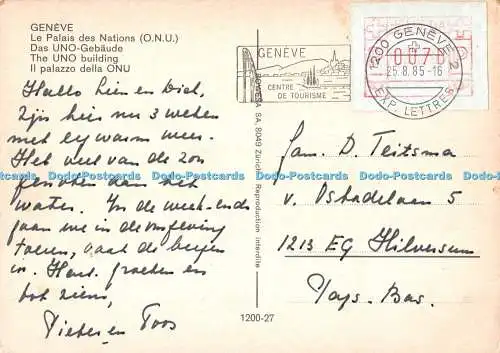 GENÈVE
Le Palais des Nations (O.N.U.)
Das UNO-Gebäude
The UNO building
Il palazzo della ONU
GENÈVE
CENTRE
DE TOURISME
1200 GENÈVE 2
007
25.8.85-16
EXP. LETTRES
SA, 8049 Zürich Reproduction interdite
Hallo hier en
Zijn hier nu 3 weken
met erg warm weer.
Heb veel van de zon
genoten aan het
water. In de week-ends
gaan we in de omgeving
toeren, vaak de bergen
in. Hart. groeten en
tot ziens,
Pieter en Toos
Fam. D. Teitsma
v. Ostadelaan 5
1213 EG Hilversum
Pays-Bas.
1200-27
Dodo-Postcards Dodo-Postcards Dodo-Postcards Dodo-Postcards